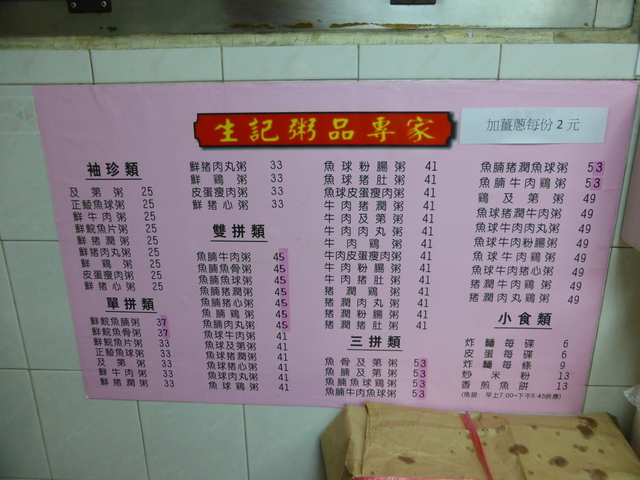 生記粥品專家
加薑蔥每份2元
袖珍類
及第粥 25
正鯪魚球粥 25
鮮牛肉粥 25
鮮鯇魚片粥 25
鮮豬潤粥 25
鮮豬肉丸粥 25
鮮鷄粥 25
皮蛋瘦肉粥 25
鮮豬心粥 25
單拼類
鮮鯇魚腩粥 37
鮮鯇魚骨粥 37
鮮鯇魚片粥 33
正鯪魚球粥 33
及第粥 33
鮮牛肉粥 33
鮮豬潤粥 33
鮮豬肉丸粥 33
鮮鷄粥 33
皮蛋瘦肉粥 33
鮮豬心粥 33
雙拼類
魚腩牛肉粥 45
魚腩魚骨粥 45
魚腩魚球粥 45
魚腩豬潤粥 45
魚腩豬心粥 45
魚腩鷄粥 45
魚腩肉丸粥 45
魚球牛肉粥 41
魚球及第粥 41
魚球豬潤粥 41
魚球豬心粥 41
魚球肉丸粥 41
魚球鷄粥 41
魚球粉腸粥 41
魚球豬肚粥 41
魚球皮蛋瘦肉粥 41
牛肉豬潤粥 41
牛肉及第粥 41
牛肉肉丸粥 41
牛肉鷄粥 41
牛肉皮蛋瘦肉粥 41
牛肉粉腸粥 41
牛肉豬肚粥 41
豬潤鷄粥 41
豬潤肉丸粥 41
豬潤粉腸粥 41
豬潤豬肚粥 41
三拼類
魚骨及第粥 53
魚腩及第粥 53
魚腩魚球鷄粥 53
魚腩牛肉魚球粥 53
魚腩豬潤魚球粥 53
魚腩牛肉鷄粥 53
鷄及第粥 49
魚球豬潤牛肉粥 49
魚球牛肉肉丸粥 49
魚球牛肉粉腸粥 49
魚球牛肉鷄粥 49
魚球牛肉豬心粥 49
豬潤牛肉鷄粥 49
豬潤肉丸鷄粥 49
小食類
炸麵每碟 6
皮蛋每碟 6
炸麵每條 9
炒米粉 13
香煎魚餅 13
(魚餅:早上7:00~下午5:45供應)